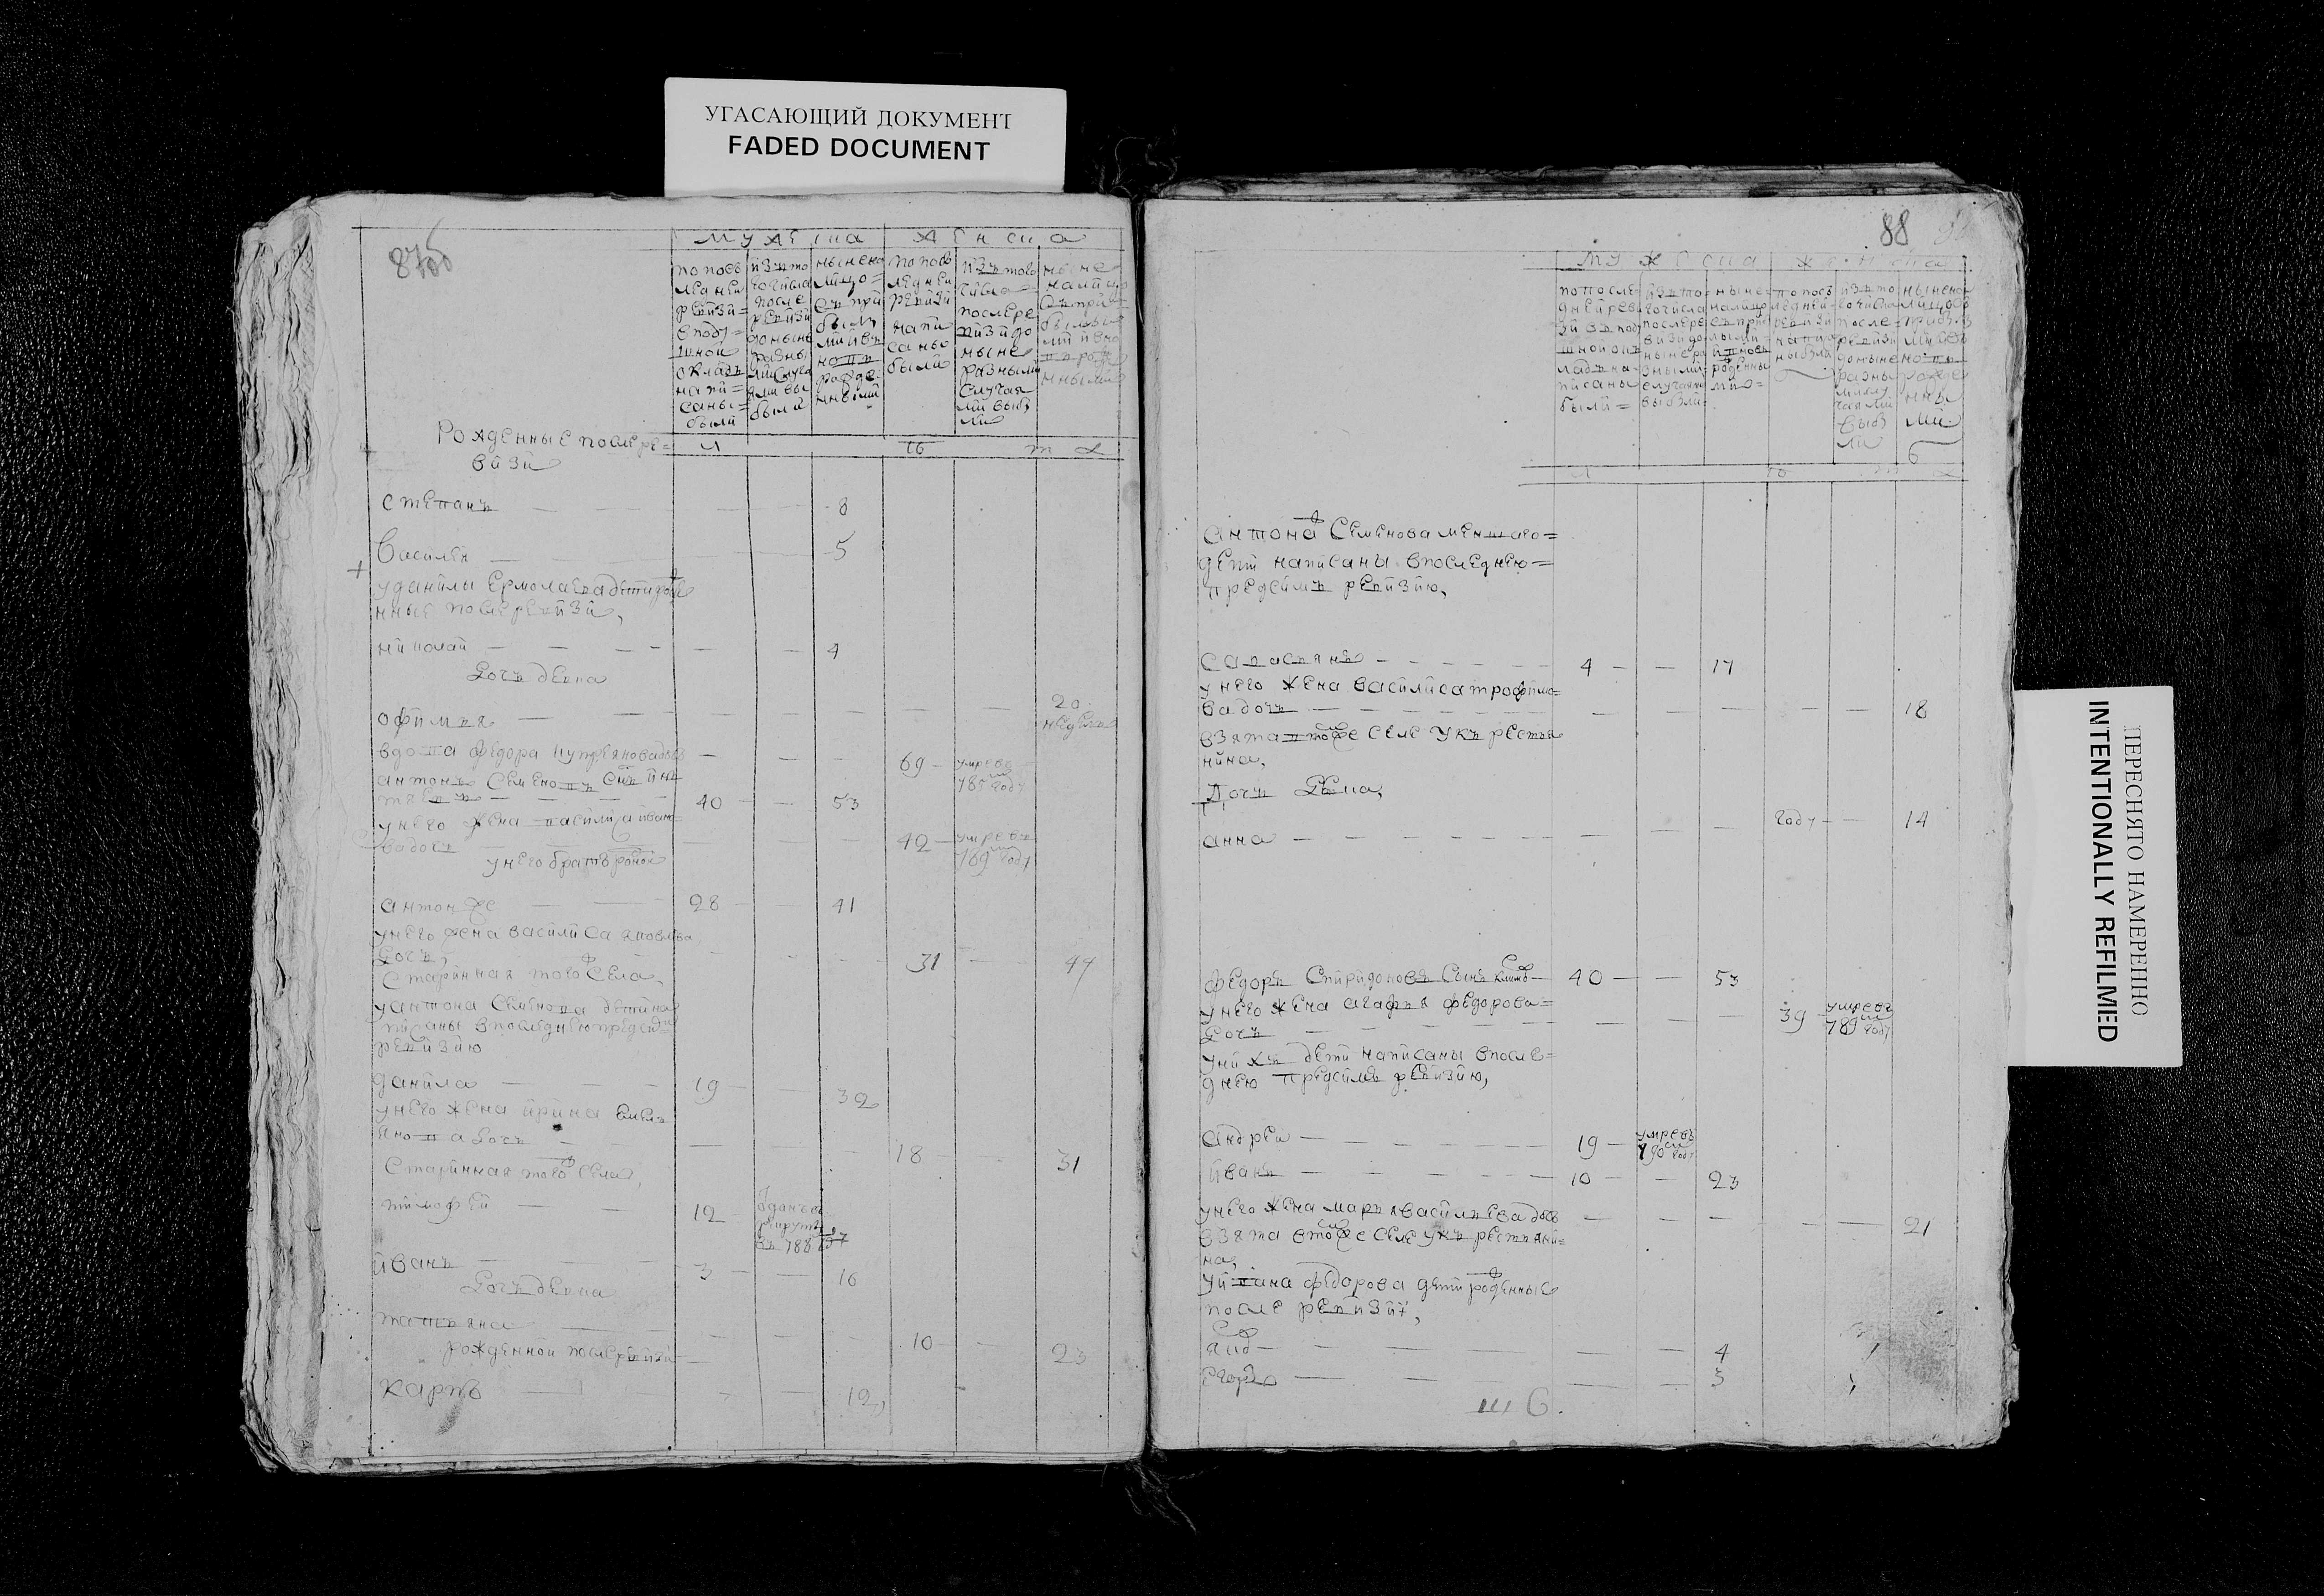 УГАСАЮЩИЙ ДОКУМЕНТ
FADED DOCUMENT
87об
мужеска женска
по посъ
ледней
ревизи=
в поду=
шной
окладъ
напи=
саны=
были
изъ то
го числа
после
ревизи
до ныне
разны
ми слуса
ями вы
были
ныне на
лицо=
съ при
былы
ми и въ
новъ
рожде
нными
по посъ
ледней
ревизи
напи
саны
были
изъ того
числа
послере
визи до
ныне
разными
случая
ми выбы
ли
ныне
налицо
съ при
былы
ми и вно
въ рож
нными
Рожденные послере=
визи
лѣта
степанъ 8
василей 5
у данилы ермолаева дети роде
нные после ревизи,
николай 4
дочь девка
офимья 20
недель
вдова федора куприянова дочь 69 умре въ
785м году
антонъ семеновъ сынъ
40 53
у него жена василиса иван=
ова дочь 42 умре въ
789м году
у него братъ роной
антон же 28 41
у него жена василиса яковлева
дочь, 31 44
старинная того ж села,
у антона семенова дети на
писаны в последнею пред сим
ревизию
данила 19 32
у него жена ирина емел=
янова дочь 18 31
старинная того ж села,
тимофей 12 отданъ в
рекруты
въ 787
иванъ 3 16
дочь девка
татьяна 10 23
рожденной после ревизи
карпъ 12,
88
мужеска женска
по после
дней реви
зи въ поду
шной ок
ладъ на
писаны
были=
изъ то
го числа
послере
визи до
ныне ра
зными
случаями
выбыли
ныне
налицо
съ при
былыми=
и вновь
рожденны
ми=
по посъ
ледней
ревизи
напи
ны были
изъ то
го числа
после
ревизи
до ныне
разны
ми слу
чаями
выбы
ли
ныне на
лицо съ
прибы
лыми и въ
новъ
рожде
нны
ми
лѣта
антона ж семенова меншаго=
дети написаны в последнею=
пред симъ ревизию,
савастьянъ 4 17
у него жена василиса трофимо=
ва дочь 18
взята в том же селе у крестья
нина,
дочь девка,
анна году 14
федоръ спиридоновъ сынъ 40 53
у него жена агафья федорова=
дочь 39 умре въ
789м году
у нихъ дети написаны в после=
днею пред симъ ревизию,
андрей 19 умре въ
790м году
иванъ 10 23
у него жена марья васильева дочь 21
взята в том же селе у крестьяни=
на,
у ивана федорова дети рожденные
после ревизи,
яковъ 4
егоръ 3
ПЕРЕСНЯТО НАМЕРЕННО
INTENTIONALLY REFILMED